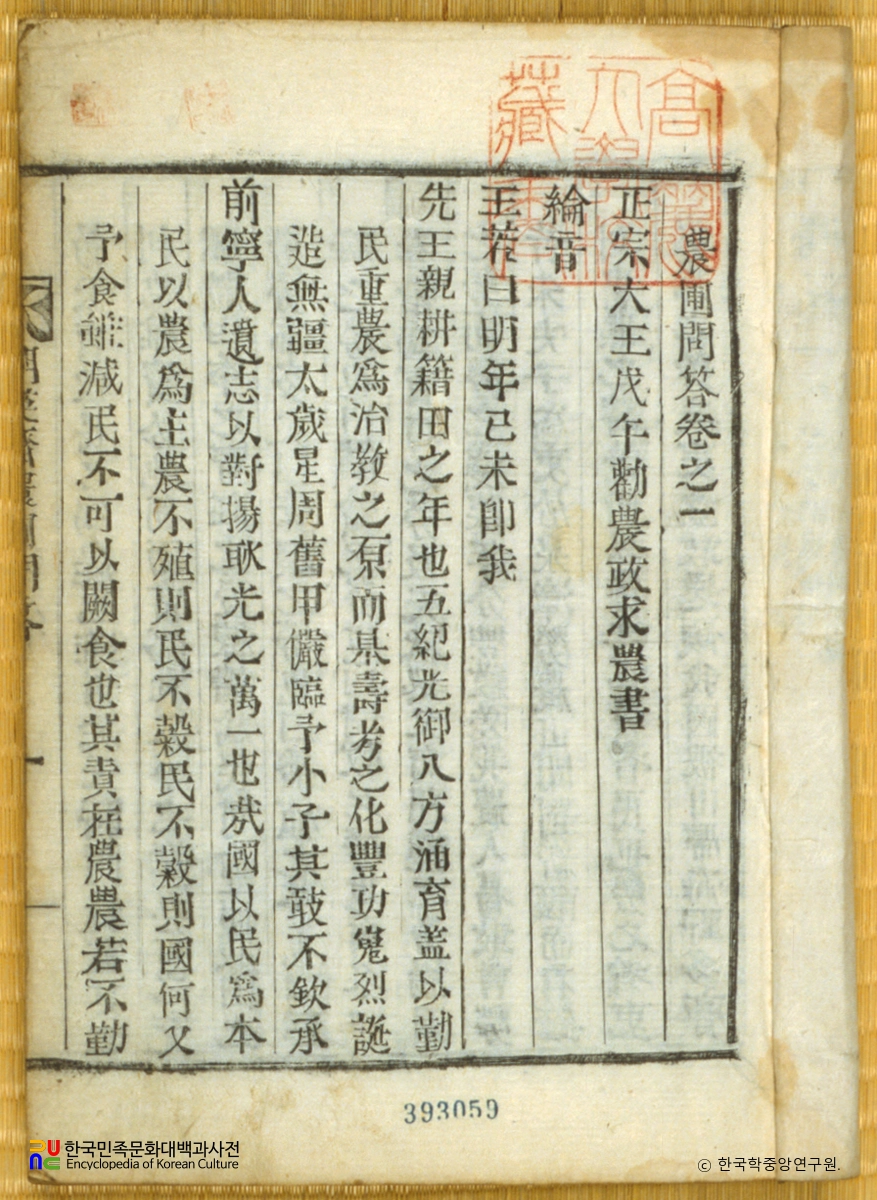 農圃問答卷之一
正宗大王戊午勸農政求農書
綸音
王若曰明年己未卽我
先王親耕籍田之年也五紀光御八方涵育盖以勤
民重農爲治敎之原而是壽考之化豐功嵬烈誕
造無疆太歲星周舊甲儼臨予小子其敢不欽承
前寧人遺志以對揚耿光之萬一也哉國以民爲本
民以農爲主農不殖則民不穀民不穀則國何又
予食雖減民不可以闕食也其責在農農若不勤
一
393059
한국민족문화대백과사전
Encyclopedia of Korean Culture
© 한국학중앙연구원.